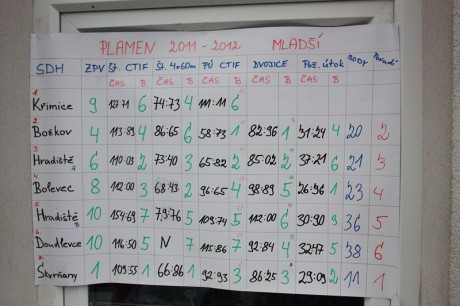 PLAMEN 2011 - 2012 MLADŠÍ
SDH ZPV ŠT. CTIF ŠT. 4x60m PÚ CTIF DVOJICE POŽ. ÚTOK BODY
ČAS B ČAS B ČAS B ČAS B ČAS B
1. Křimice 9 127:71 6 74:73 4 111:11 6
2. Božkov 4 113:89 4 86:65 6 58:73 1 82:96 1 31:24 4 20 2
3. Hradiště A 6 110:03 2 73:40 3 65:82 2 85:02 2 37:21 6 21 3
4. Bolevec 8 112:00 3 68:43 2 96:65 4 98:89 5 26:96 1 23 4
5. Hradiště B 10 154:69 7 79:76 5 109:74 5 112:00 6 30:90 3 36 5
6. Doudlevce 10 116:50 5 N 7 115:86 7 92:84 4 32:47 5 38 6
7. Skvrňany 1 109:55 1 66:86 1 92:93 3 86:25 3 29:09 2 11 1